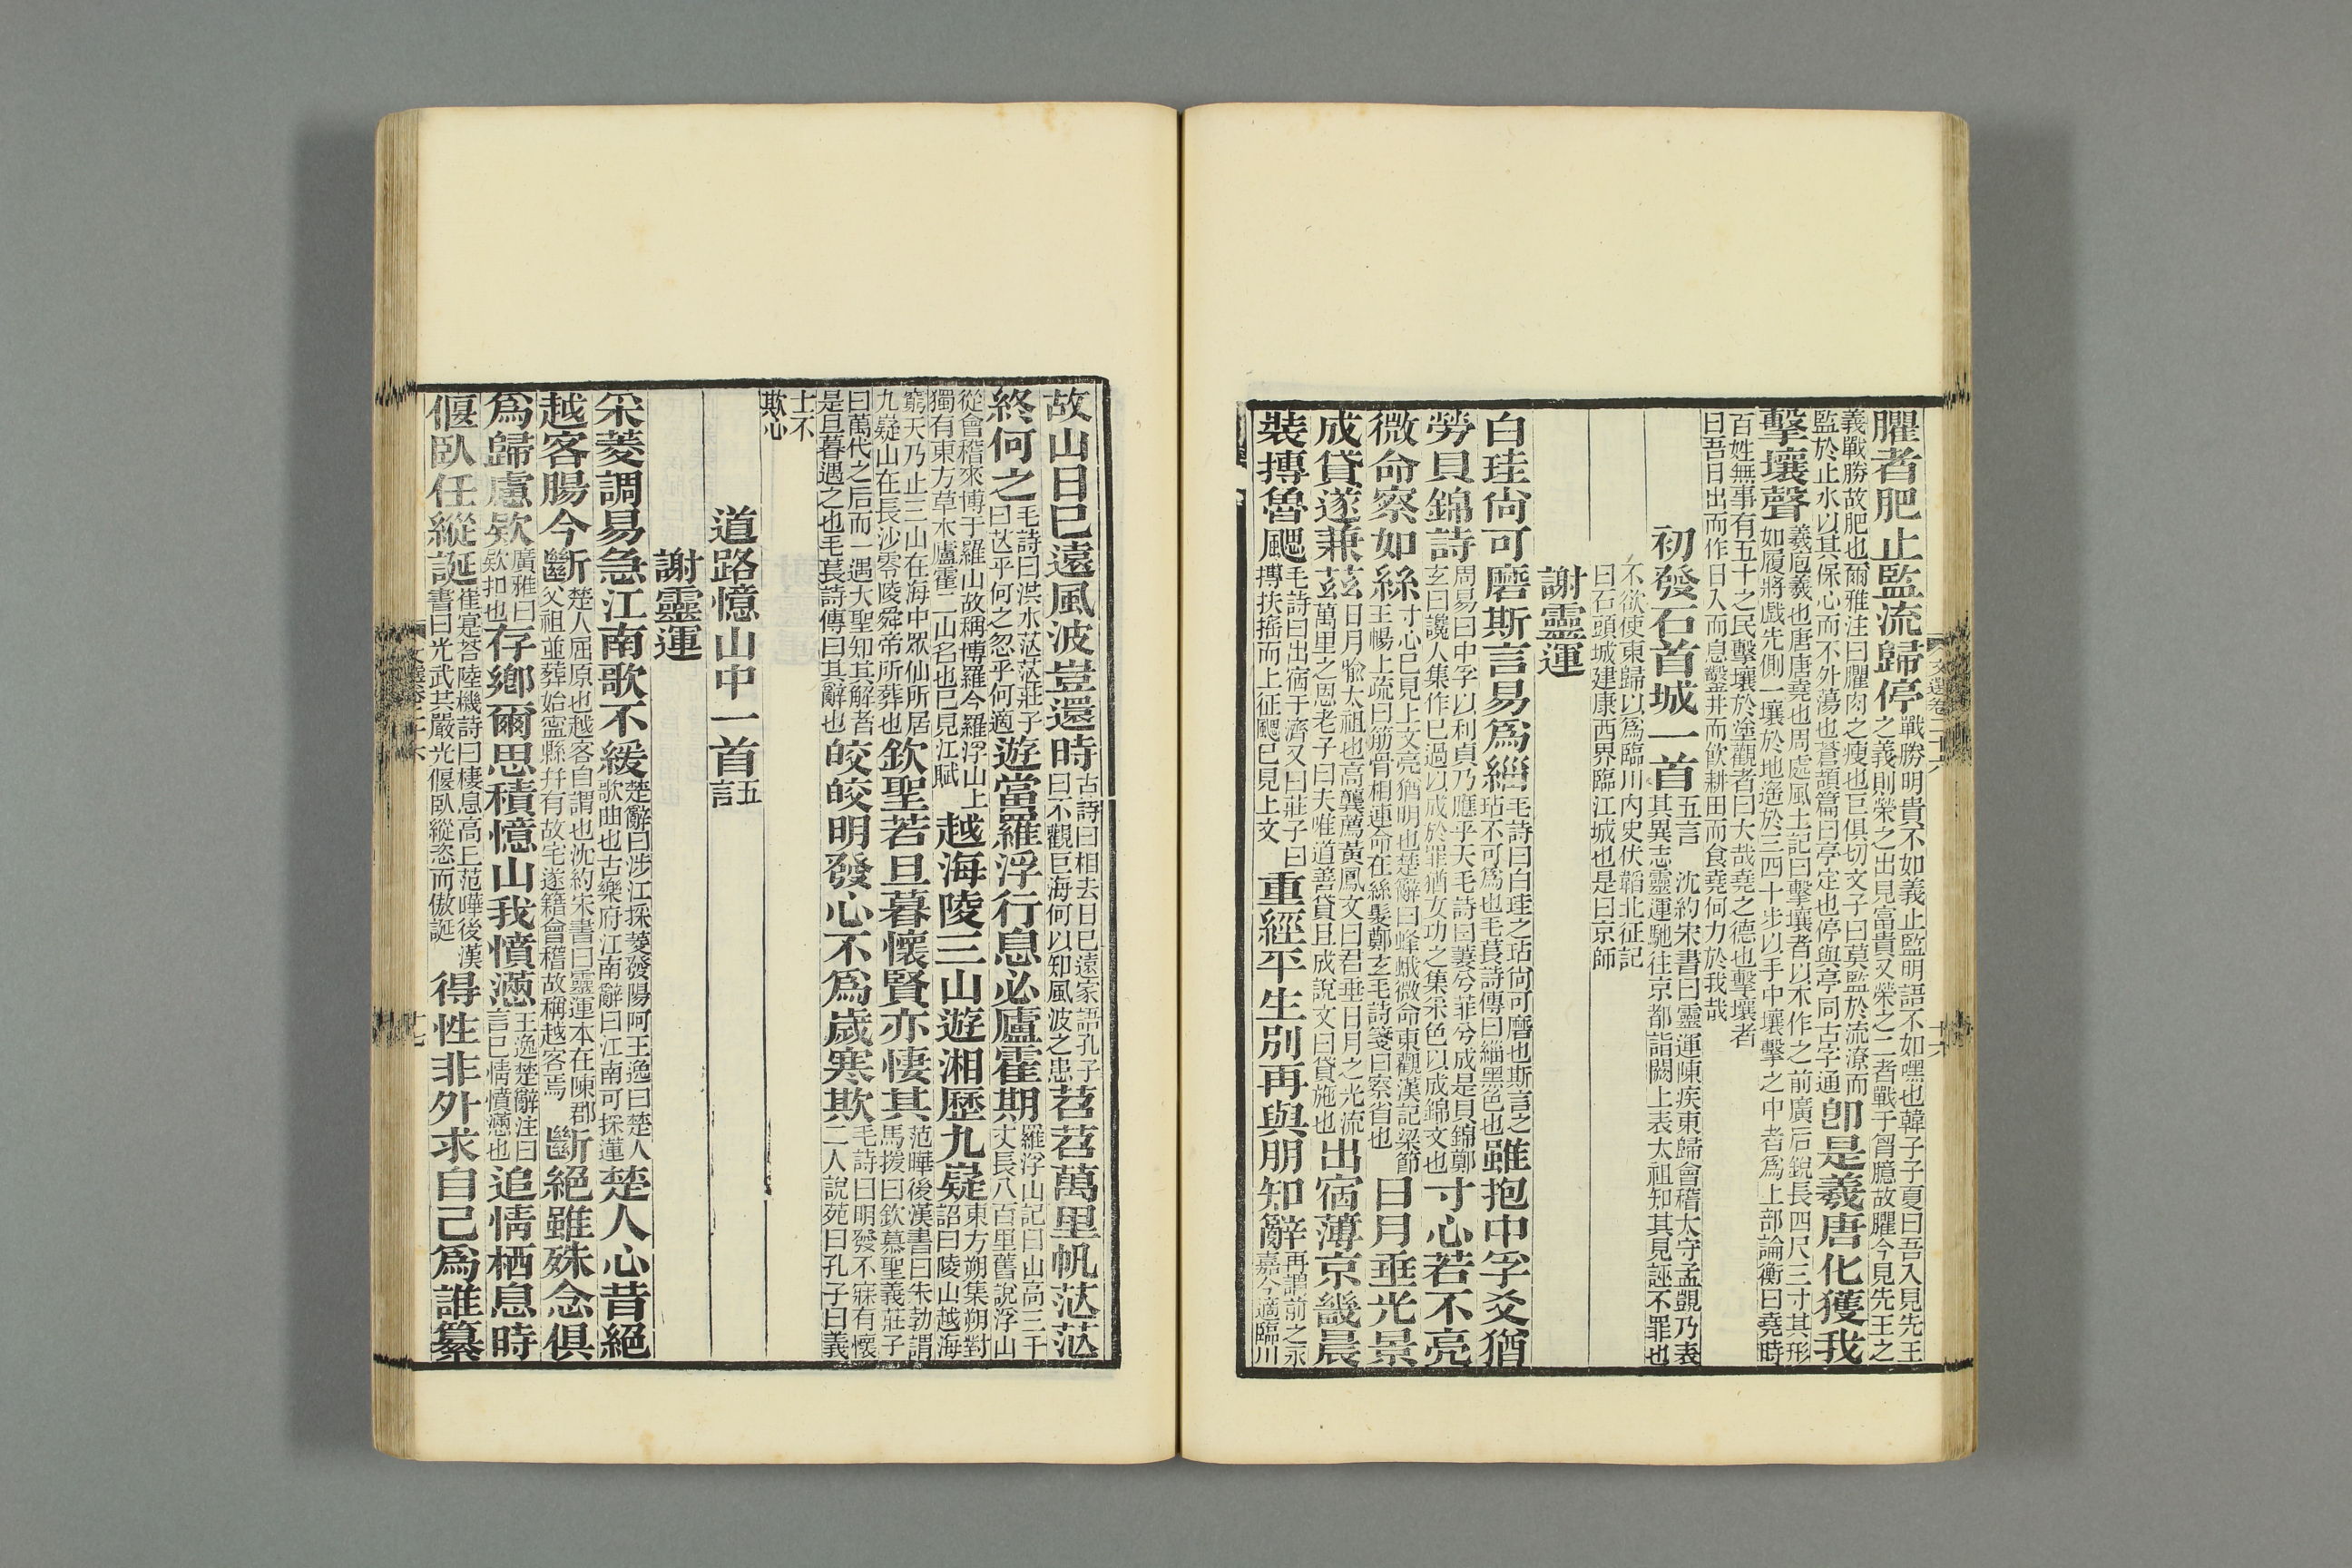 臞者肥止監流歸停戰勝明貴不如義止監明語不如嘿也韓子子夏曰吾入見先王之義則榮之出見富貴又榮之二者戰于胷臆故臞今見先王之
義戰勝故肥也爾雅注曰臞肉之瘦也巨俱切文子曰莫監於流潦而監於止水以其保心而不外蕩也蒼頡篇曰亭定也停與亭同古字通卽是羲唐化獲我
擊壤聲羲庖羲也唐唐堯也周處風土記曰擊壤者以木作之前廣后銳長四尺三寸其形如履將戲先側一壤於地遙於三四十步以手中壤擊之中者爲上部論衡曰堯時
百姓無事有五十之民擊壤於塗觀者曰大哉堯之德也擊壤者曰吾日出而作日入而息鑿井而飮耕田而食堯何力於我哉
初發石首城一首五言 沈約宋書曰靈運陳疾東歸會稽太守孟顗乃表其異志靈運馳往京都詣闕上表太祖知其見誣不罪也
不欲使東歸以爲臨川內史伏韜北征記曰石頭城建康西界臨江城也是曰京師
謝靈運
白珪尙可磨斯言易爲緇毛詩曰白珪之玷尙可磨也斯言之玷不可爲也毛萇詩傳曰緇黑色也雖抱中孚爻猶
勞貝錦詩周易曰中孚以利貞乃應乎天毛詩曰萋兮菲兮成是貝錦鄭玄曰讒人集作已過以成於罪猶女功之集采色以成錦文也寸心若不亮
微命察如絲寸心已見上文亮猶明也楚辭曰蜂蛾微命東觀漢記梁節王暢上疏曰筋骨相連命在絲髮鄭玄毛詩箋曰察省也日月垂光景
成貸遂兼茲日月喻太祖也高龔薦黃鳳文曰君垂日月之光流萬里之恩老子曰夫唯道善貸且成說文曰貸施也出宿薄京畿晨
裝摶魯颸毛詩曰出宿于濟又曰莊子曰摶扶搖而上征颸已見上文重經平生別再與朋知辭再謂前之永嘉今適臨川
文選卷二十六 十六
故山日已遠風波豈還時古詩曰相去日已遠家語孔子曰不觀巨海何以知風波之患苕苕萬里帆茫茫
終何之毛詩曰淇水茫茫莊子曰芒乎何之忽乎何適遊當羅浮行息必廬霍期羅浮山記曰山高三千丈長八百里舊說浮山
從會稽來博于羅山故稱博羅今羅浮山上獨有東方草木廬霍二山名也已見江賦越海陵三山遊湘歷九嶷東方朔集朔對詔曰陵山越海
窮天乃止三山在海中眾仙所居九嶷山在長沙零陵舜帝所葬也欽聖若旦暮懷賢亦悽其范曄後漢書曰朱勃謂馬援曰欽慕聖義莊子
曰萬代之后而一遇大聖知其解者是旦暮遇之也毛萇詩傳曰其辭也皎皎明發心不爲歲寒欺毛詩曰明發不寐有懷二人說苑曰孔子曰義
士不欺心
道路憶山中一首五言
謝靈運
采菱調易急江南歌不緩楚辭曰涉江採菱發陽阿王逸曰楚人歌曲也古樂府江南辭曰江南可採蓮楚人心昔絕
越客腸今斷楚人屈原也越客自謂也沈約宋書曰靈運本在陳郡父祖並葬始寧縣幷有故宅遂籍會稽故稱越客焉斷絕雖殊念俱
爲歸慮欵廣雅曰欵扣也存鄉爾思積憶山我憤懣王逸楚辭注曰言已情憤懣也追情栖息時
偃臥任縱誕崔寔荅陸機詩曰棲息高丘范曄後漢書曰光武其嚴光偃臥縱恣而傲誕得性非外求自己爲誰纂
文選卷二十六 十七